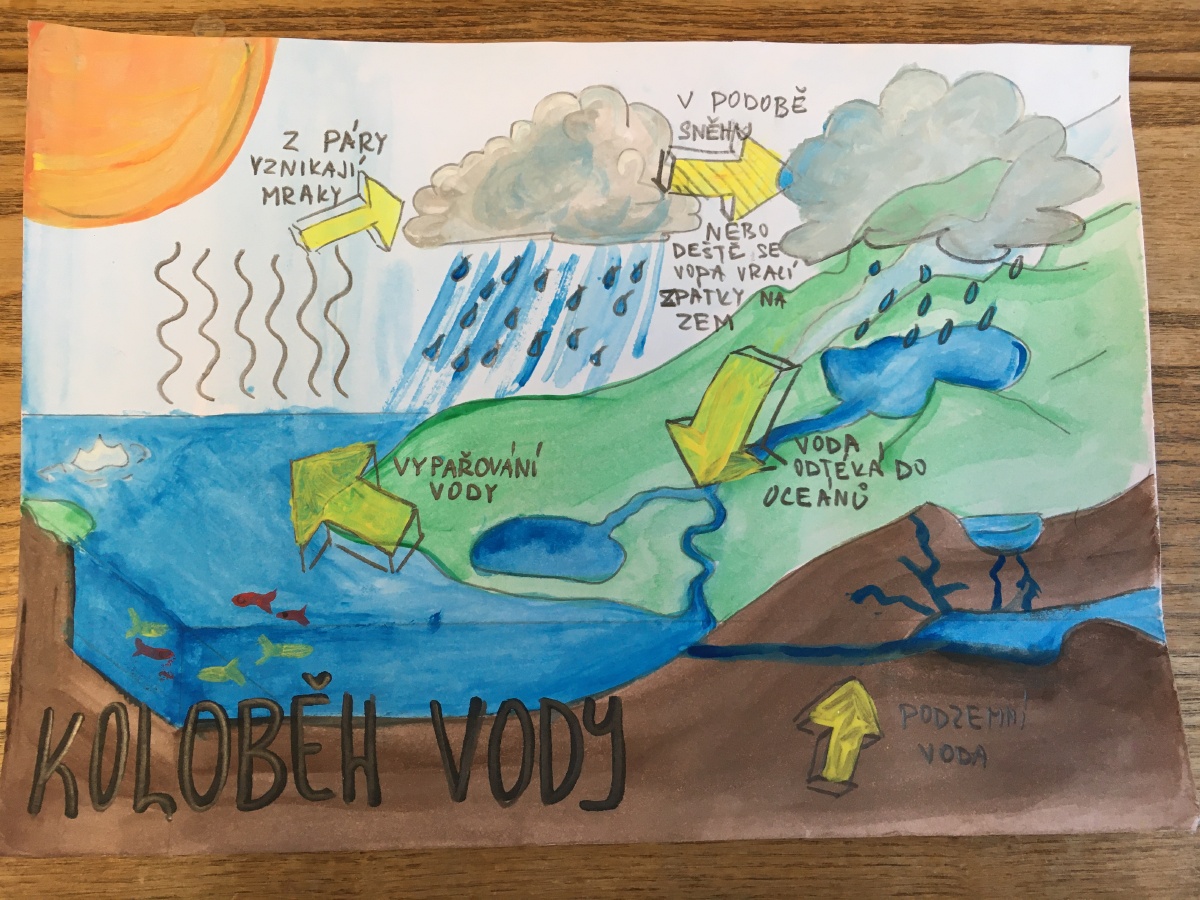 Z PÁRY
VZNIKAJÍ
MRAKY
V PODOBĚ
SNĚHU
NEBO
DEŠTĚ SE
VODA VRACÍ
ZPÁTKY NA
ZEM
VYPAŘOVÁNÍ
VODY
VODA
ODTÉKÁ DO
OCEÁNŮ
PODZEMNÍ
VODA
KOLOBĚH VODY